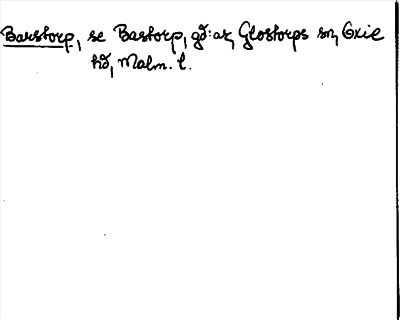 Barstorp, se Bastorp, gd: ar, Glostorps sn, Oxie
hd, Malm. l.